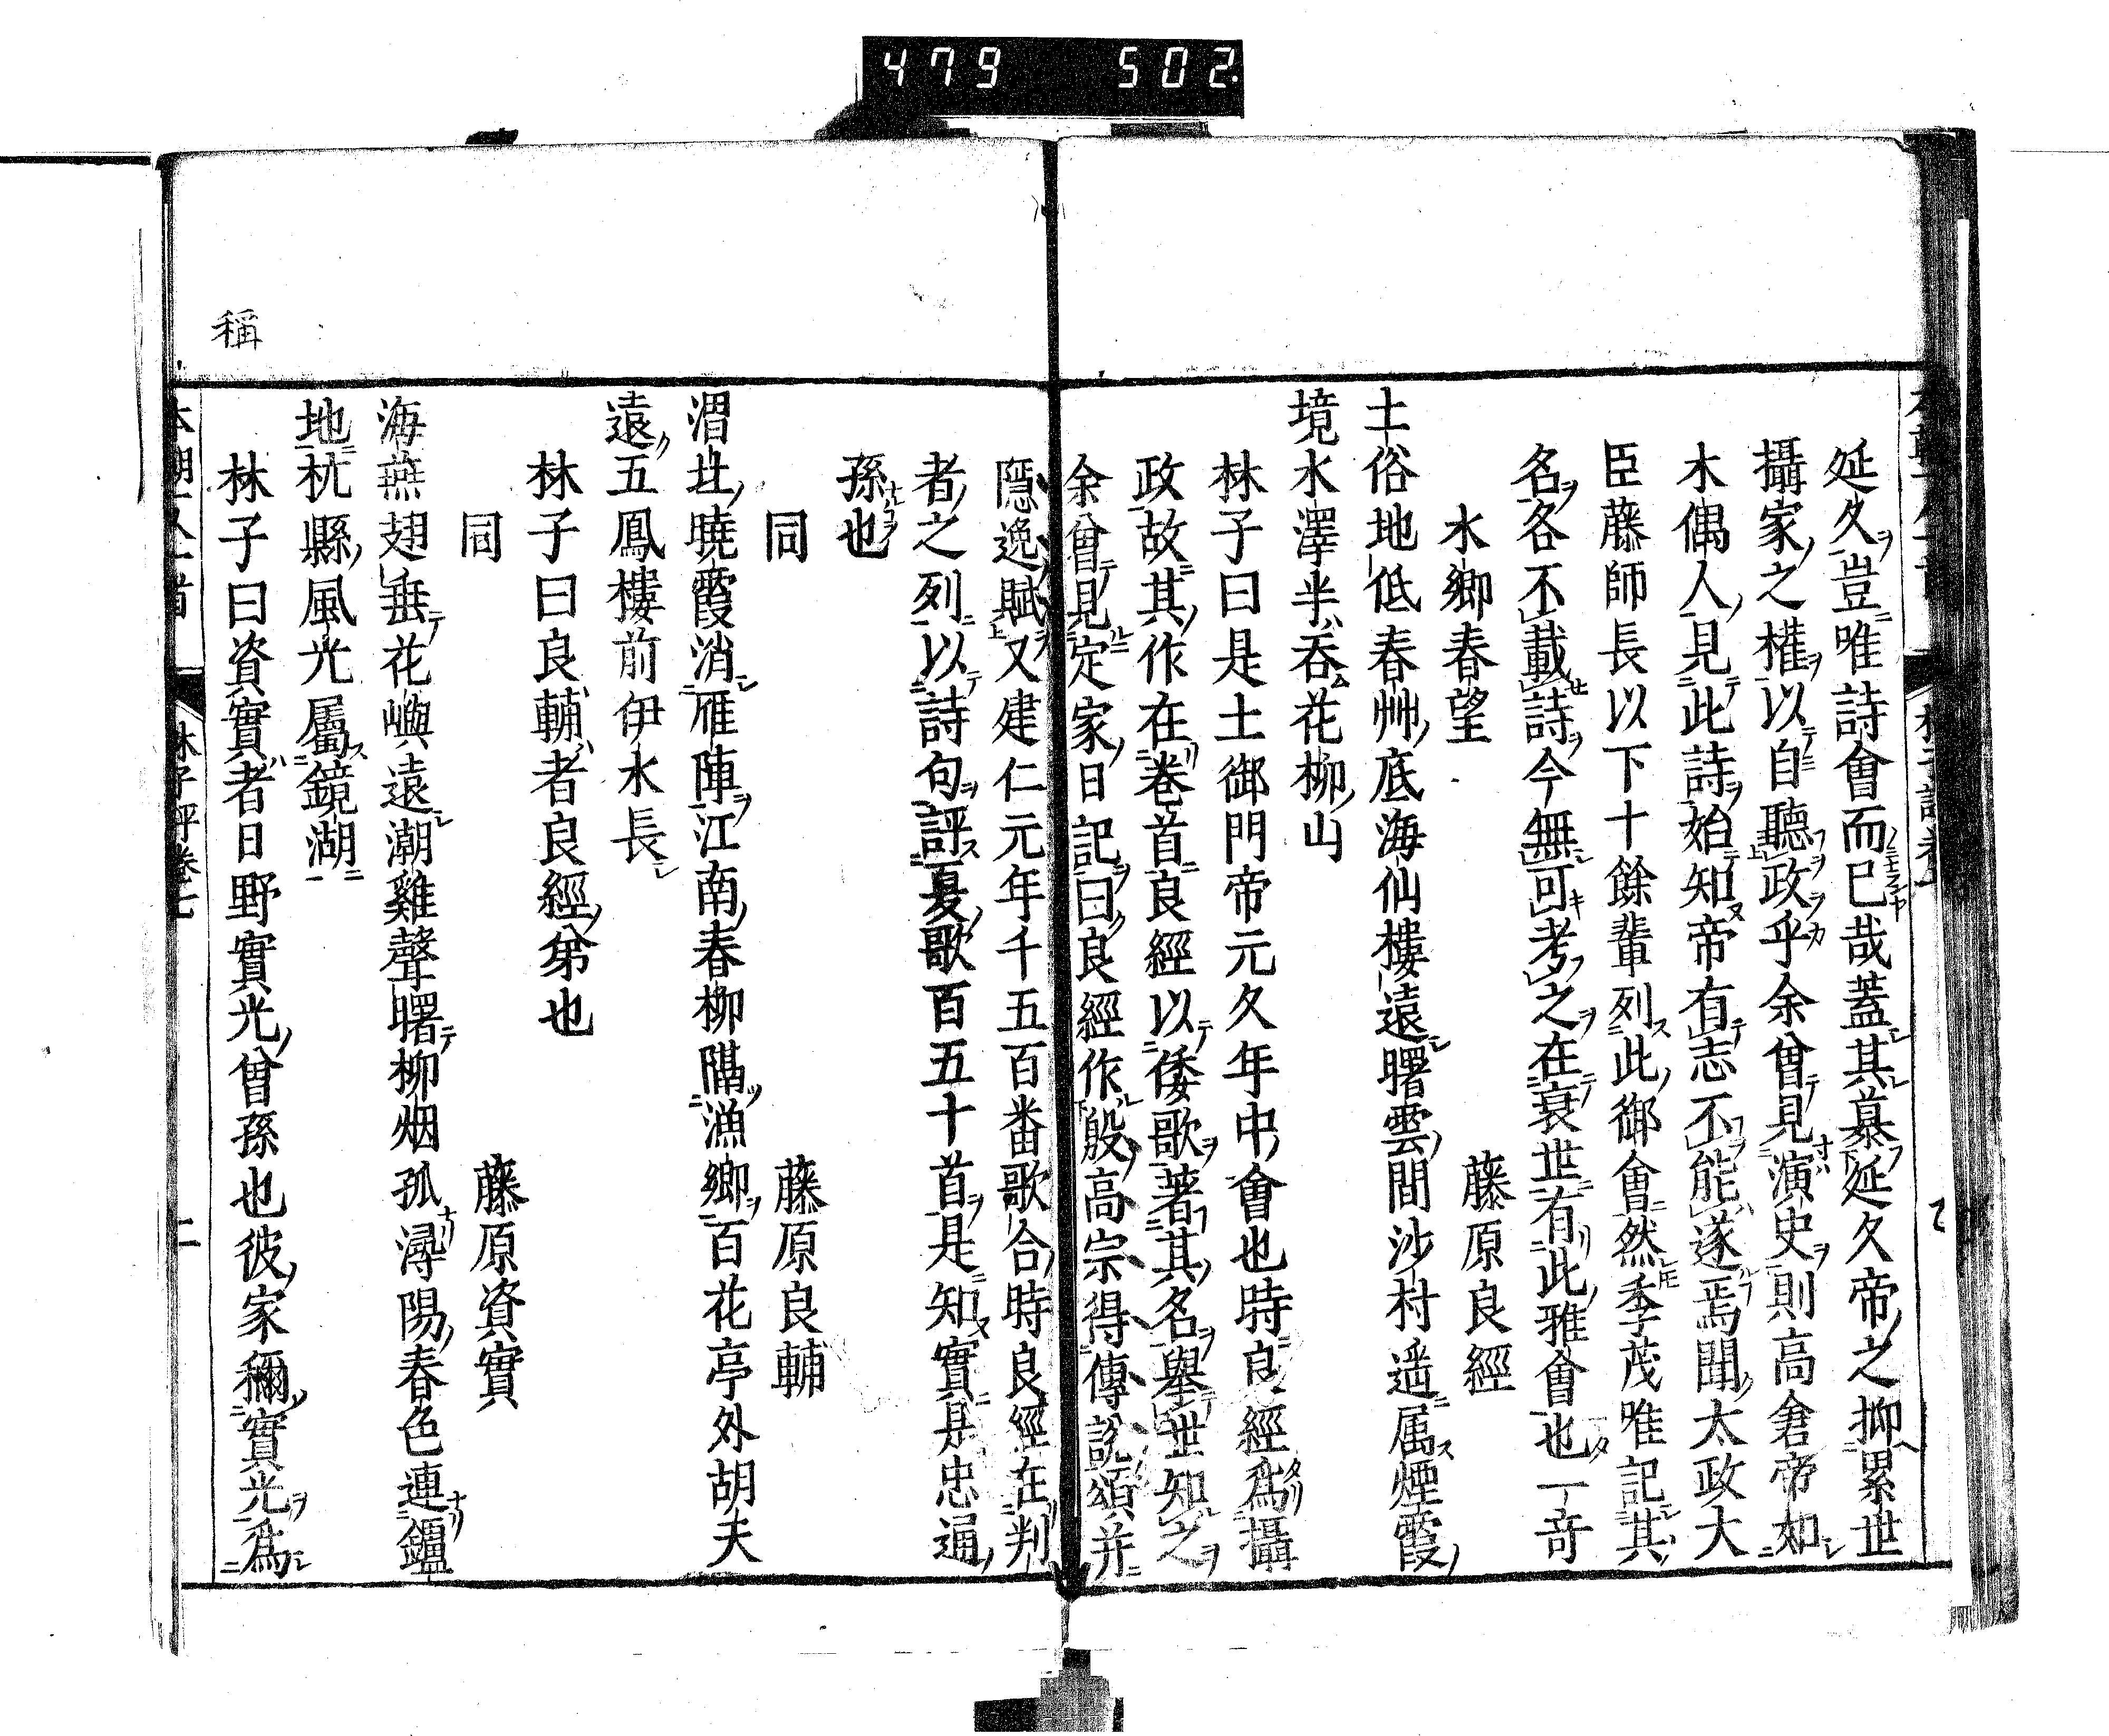 479 502.
延久豈唯詩會而已哉蓋其慕延久帝之抑累世
攝家之權以自聽政乎余曾見演史則高倉帝如
木偶人見此詩始知帝有志不能遂焉聞太政大
臣藤師長以下十餘輩列此御會然季茂唯記其
名各不載詩今無可考之在衰世有此雅會也一奇
水鄉春望 藤原良經
土俗地低春艸底海仙樓遠曙雲間沙村遥属煙霞
境水澤半吞花柳山
林子曰是土御門帝元久年中會也時良經爲攝
政故其作在卷首良經以倭歌著其名舉世知之
余曾見定家日記曰良經作殷高宗得傳說頌并
隱逸賦又建仁元年千五百番歌合時良經在判
者之列以詩句評夏歌百五十首是知實是忠通
孫也
同 藤原良輔
渭北曉霞消雁陣江南春柳隔漁鄉百花亭外胡天
遠五鳳樓前伊水長
林子曰良輔者良經弟也
同 藤原資實
海燕翅垂花嶼遠潮雞聲曙柳烟孤潯陽春色連鑪
地杭縣風光屬鏡湖
林子曰資實者日野實光曾孫也彼家禰實光爲
稱
林子評卷七
二